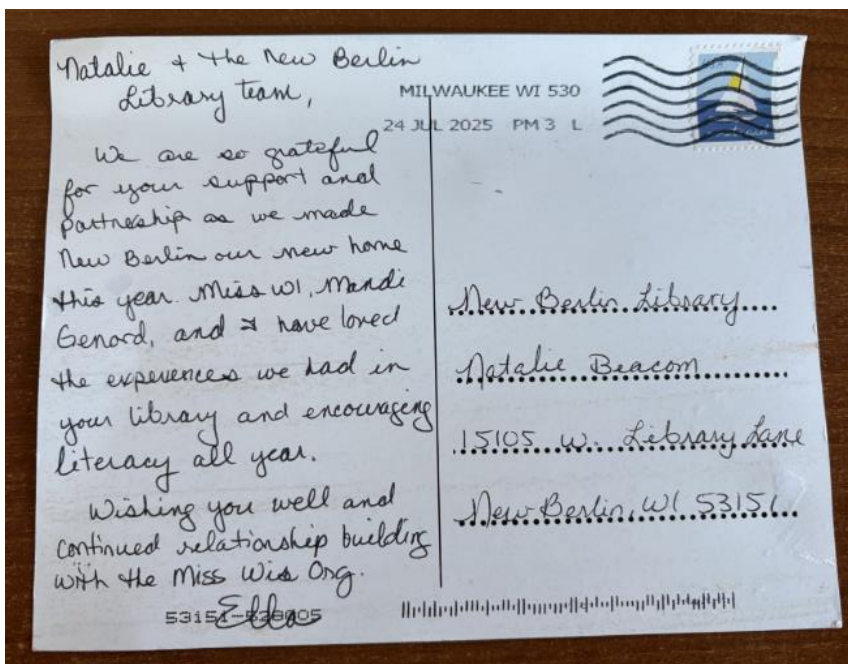 Natalie + the New Berlin
Library team,
We are so grateful
for your support and
partneship as we made
New Berlin our new home
this year. Miss WI, Mandi
Genord, and I have loved
the experences we had in
your library and encouraging
literacy all year.
Wishing you well and
continued relationship building
with the Miss Wis Org.
Ella
MILWAUKEE WI 530
24 JUL 2025 PM 3 L
New Berlin Library
Natalie Beacom
15105 W. Library Lane
New Berlin, WI 53151